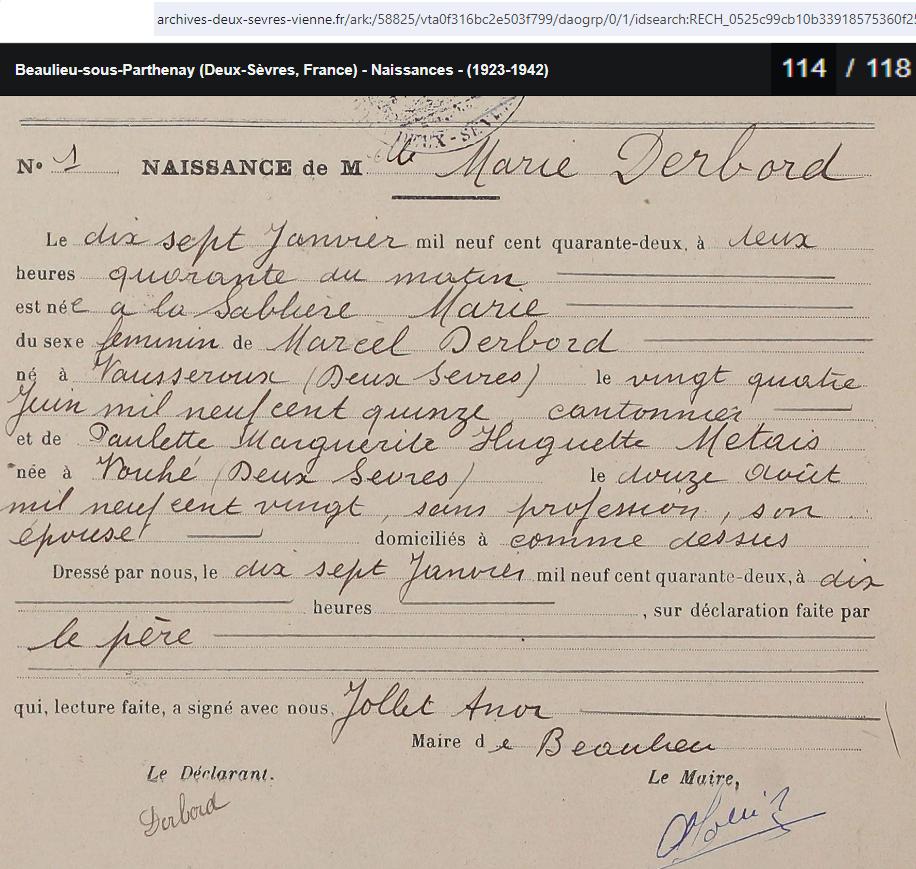 archives-deux-sevres-vienne.fr/ark:/58825/vta0f316bc2e503f799/daogrp/0/1/idsearch:RECH_0525c99cb10b33918575360f25
Beaulieu-sous-Parthenay (Deux-Sèvres, France) - Naissances - (1923-1942) 114 / 118
DEUX-SEVRES
N° 1 NAISSANCE de M elle Marie Derbord
Le dix sept Janvier mil neuf cent quarante-deux, à deux
heures quarante du matin
est née a la Sablière Marie
du sexe feminin de Marcel Derbord
né à Vausseroux (Deux Sevres) le vingt quatre
Juin mil neuf cent quinze cantonnier
et de Paulette Marguerite Huguette Metais
née à Vouhé (Deux Sevres) le douze Août
mil neuf cent vingt, sans profession, son
épouse domiciliés à comme dessus
Dressé par nous, le dix sept Janvier mil neuf cent quarante-deux, à dix
heures , sur déclaration faite par
le père
qui, lecture faite, a signé avec nous, Jollet
Maire de Beaulieu
Le Déclarant. Le Maire,
Derbord